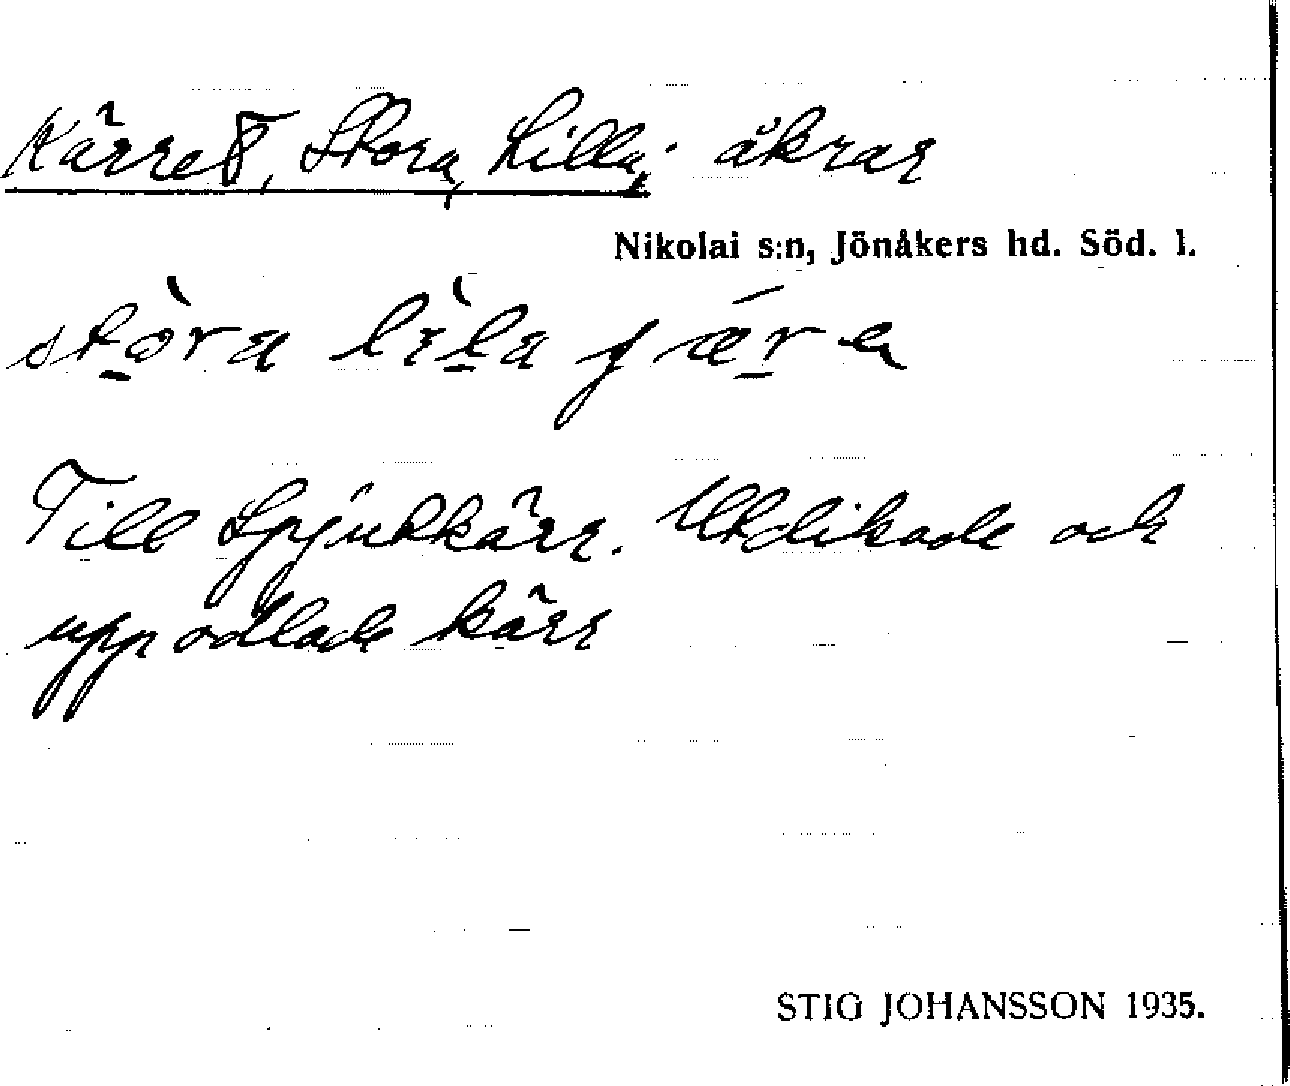 Kärret, Stora, Lilla; åkrar
Nikolai s:n, Jönåkers hd. Söd. l.
stòra lìla çǽra
Till Spjutkärr. Utdikade och
uppodlade kärr
STIG JOHANSSON 1935.